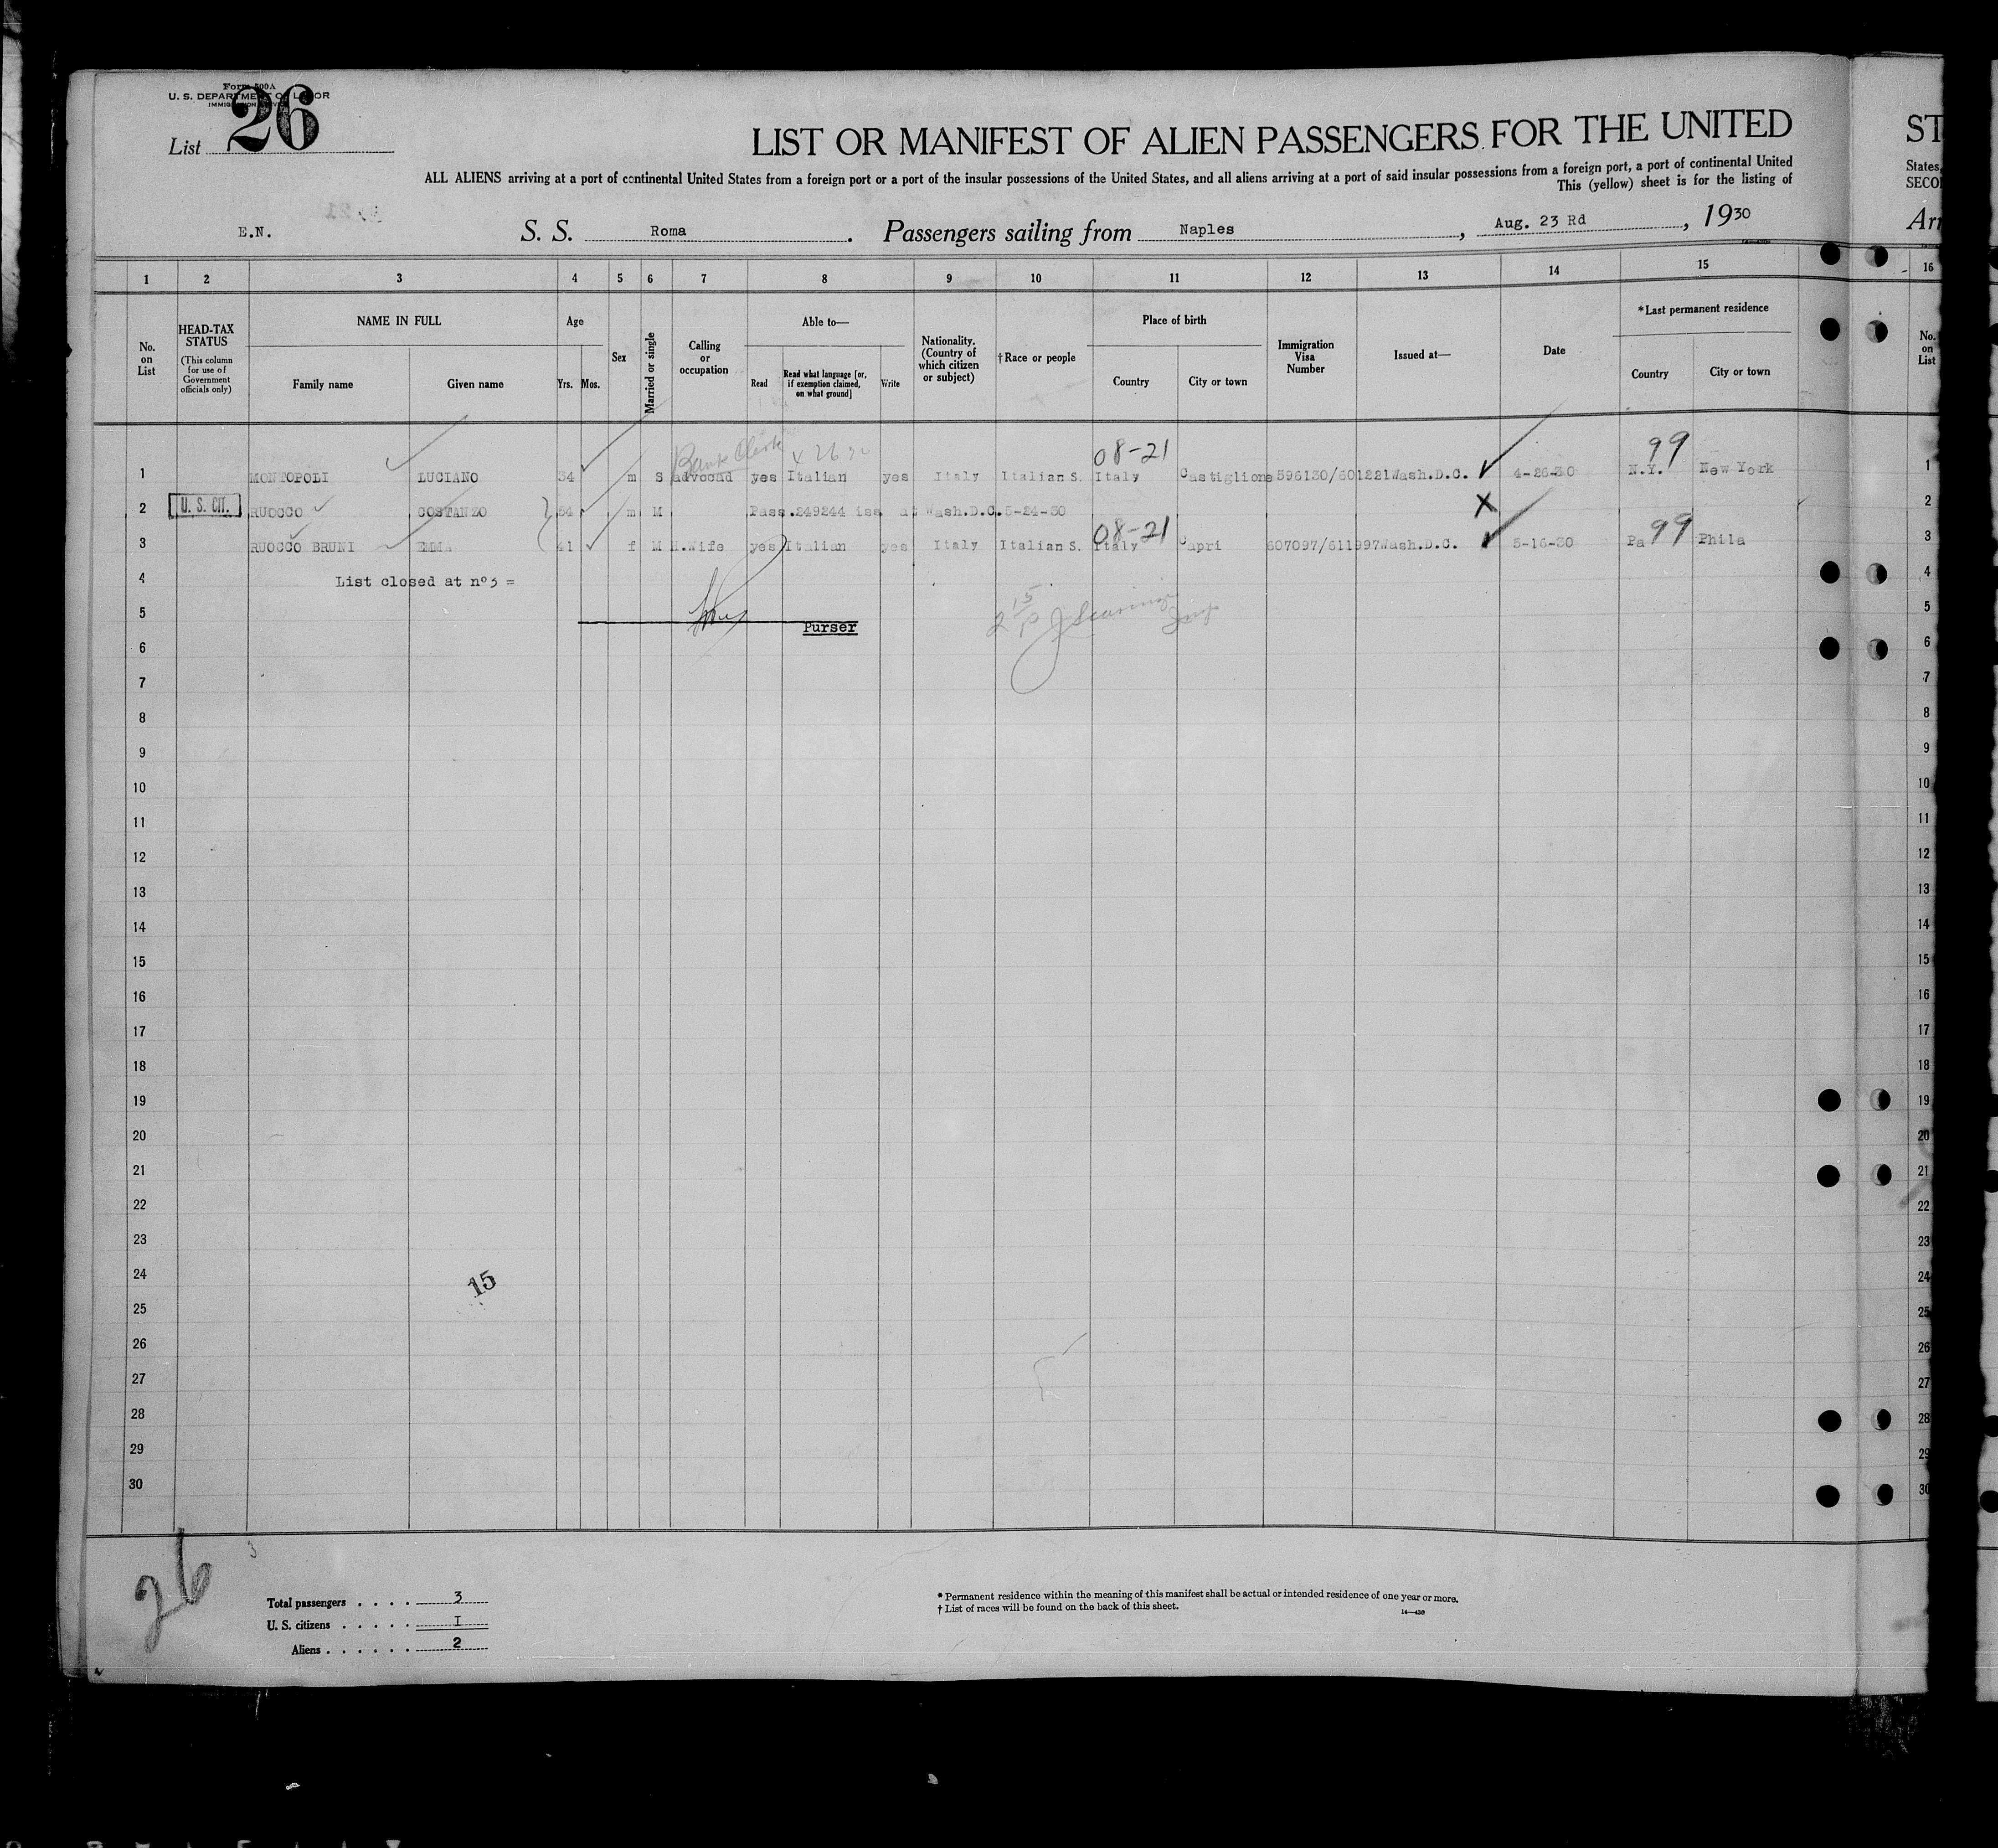 Form 500A
U. S. DEPARTMENT OF LABOR
List 26
LIST OR MANIFEST OF ALIEN PASSENGERS FOR THE UNITED
ST
ALL ALIENS arriving at a port of continental United States from a foreign port or a port of the insular possessions of the United States, and all aliens arriving at a port of said insular possessions from a foreign port, a port of continental United
States,
This (yellow) sheet is for the listing of
E.N. S. S. Roma. Passengers sailing from Naples, Aug. 23 Rd, 1930
1 2 3 4 5 6 7 8 9 10 11 12 13 14 15 16
No. on List
HEAD-TAX STATUS
(This column for use of Government officials only)
NAME IN FULL
Family name Given name
Age
Yrs. Mos.
Sex
Married or single
Calling or occupation
Able to—
Read
Read what language [or, if exemption claimed, on what ground]
Write
Nationality. (Country of which citizen or subject)
†Race or people
Place of birth
Country City or town
Immigration Visa Number
Issued at—
Date
*Last permanent residence
Country City or town
No. on List
Bank Clerk 08-21 99
1 MONTOPOLI LUCIANO 34 m S advocad yes Italian yes Italy Italian S. Italy Castiglione 596130/601221 Wash.D.C. 4-26-30 N.Y. New York 1
2 U. S. CIT. RUOCCO COSTANZO 54 m M Pass.249244 iss at Wash.D.C.5-24-30 X 2
08-21 99
3 RUOCCO BRUNI EMMA 41 f M H.Wife yes Italian yes Italy Italian S. Italy Capri 607097/611997 Wash.D.C. 5-16-30 Pa Phila 3
4 List closed at nº3 = 4
5 5
Purser
6 6
7 7
8 8
9 9
10 10
11 11
12 12
13 13
14 14
15 15
16 16
17 17
18 18
19 19
20 20
21 21
22 22
23 23
24 24
15
25 25
26 26
27 27
28 28
29 29
30 30
26
Total passengers . . . . 3
U. S. citizens . . . . . I
Aliens . . . . . . 2
* Permanent residence within the meaning of this manifest shall be actual or intended residence of one year or more.
† List of races will be found on the back of this sheet.
14—430